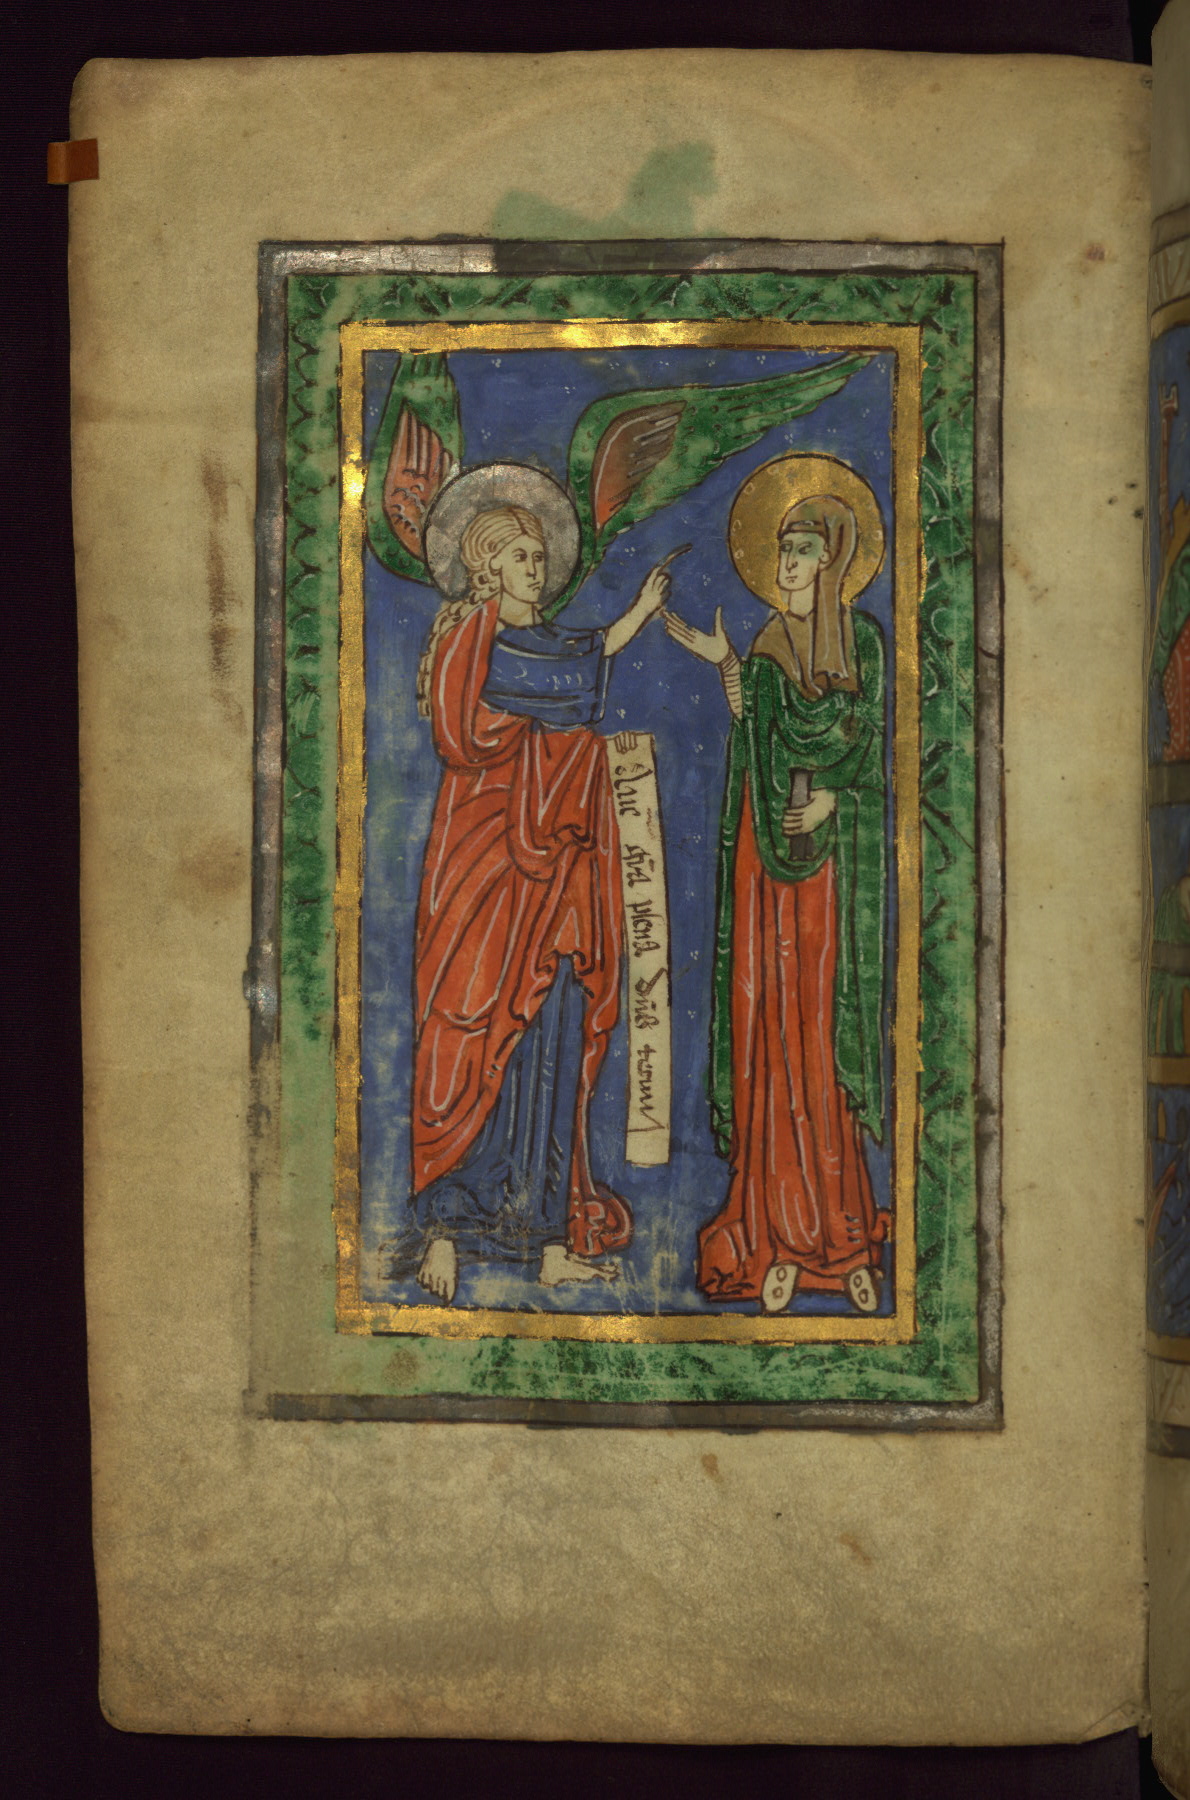 Aue gr̄a plena dn̄s tecum